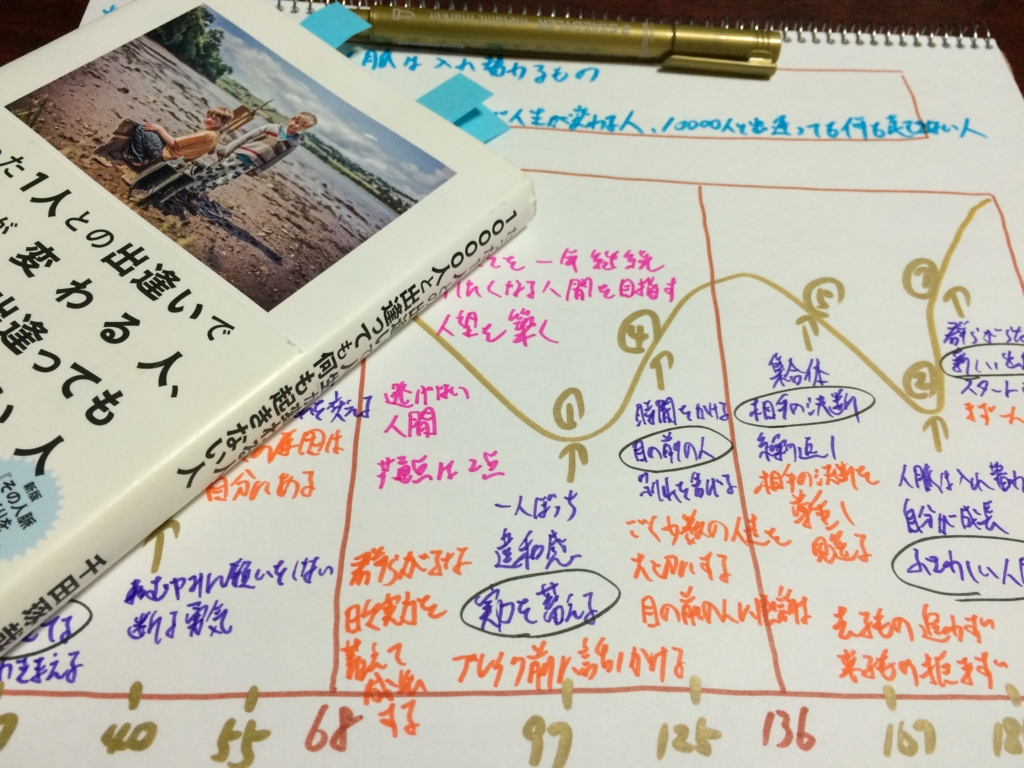 脈は入れ替わるもの
人生が変わる人、10000人と出逢っても何も起きない人
た1人との出逢いで
が変わる人、
出逢っても
い人
新版
『その人脈
10000人と出逢っても何も起きない人
千田琢哉
て一年継続
たくなる人間を目指す
人望を築く
逃げない
人間
を変える
原因は
自分にある
むやみに願いをしない
断る勇気
群らがるな
日々実力を
蓄えて
成長
する
①
一人ぼっち
違和感
実力を蓄える
ブレイク前に話しかける
④
時間をかける
目の前の人
別れを告げる
ごく少数の人を
大切にする
目の前の人に感謝
⑤
集合体
相手の決断
繰り返し
相手の決断を
尊重し
見送る
③
②
群らがら
新しい出
スタート
まず一人
人脈は入れ替わ
自分が成長
ふさわしい人
去るもの追わず
来るもの拒まず
40
55
68
97
125
136
169